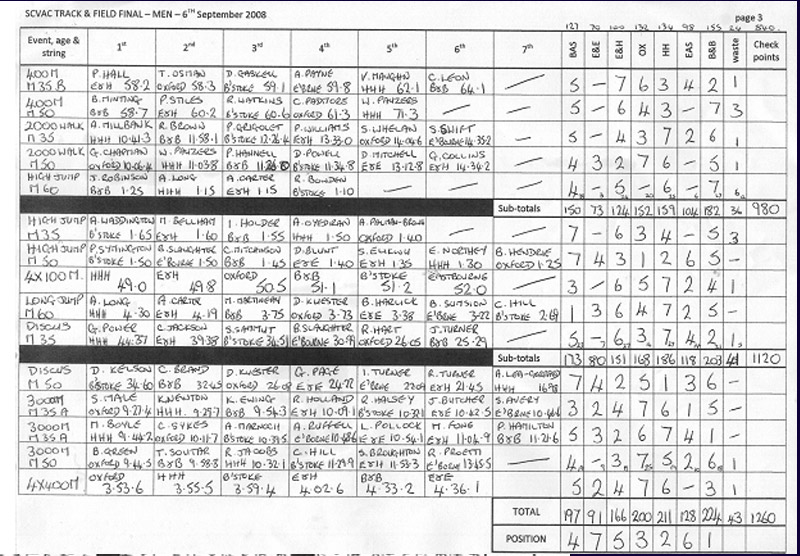 SCVAC TRACK & FIELD FINAL – MEN – 6TH September 2008 page 3
127 70 100 132 134 98 155 24 840
Event, age & string 1st 2nd 3rd 4th 5th 6th 7th BAS E&E E&H OX HH EAS B&B waste Check points
400M P. HALL T. OSMAN D. GASKELL A. PAYNE V. MAUGHN C. LEON
M 35 B E&H 58.2 OXFORD 58.3 B'STOKE 59.1 E'BRNE 59.8 HHH 62.1 B&B 64.1 5 – 7 6 3 4 2 1
400M B. MINTING P. STILES R. WATKINS C. PADMORE W. PANZERS
M 50 B&B 58.7 E&H 60.2 B'STOKE 60.6 OXFORD 61.3 HHH 71.3 5 – 6 4 3 – 7 3
2000 WALK A. MILLBANK R. BROWN P. GRIGOLET P. WILLIAMS S. WHELAN S. SWIFT
M 35 HHH 10.41.3 B&B 11.58.1 B'STOKE 12.26.4 E&H 13.33.0 OXFORD 14.04.6 E'BOURNE 14.35.2 5 – 4 3 7 2 6 1
2000 WALK G. CHAPMAN W. PANZERS P. HANNELL D. POWELL D. MITCHELL G. COLLINS
M 50 OXFORD 10.06.4 HHH 11.03.8 B&B B'STOKE E&E 13.12.8 E&H 14.34.2 4 3 2 7 6 – 5 1
HIGH JUMP J. ROBINSON A. LONG A. CARTER R. BOWDEN
M 60 B&B 1.25 HHH 1.15 E&H 1.15 B'STOKE 1.10 4 – 5 – 6 – 7 6
Sub-totals 150 73 124 152 159 104 182 36 980
HIGH JUMP A. WADDINGTON M. BELLHAM I. HOLDER A. OYEDIRAN
M35 B'STOKE 1.65 E&H 1.60 B&B 1.55 HHH 1.50 OXFORD 1.40 7 – 6 3 4 – 5 3
HIGH JUMP P. SYMINGTON B. SLAUGHTER C. MITCHINSON D. BLUNT E. NORTHEY B. HENDRIE
M 50 B'STOKE 1.50 E'BOURNE 1.50 B&B 1.45 E&E 1.40 E&H 1.35 HHH 1.30 OXFORD 1.25 7 4 3 1 2 6 5 –
4X100M. HHH E&H OXFORD B&B B'STOKE EASTBOURNE
49.0 49.8 50.5 51.1 51.2 52.0 3 – 6 5 7 2 4 1
LONG JUMP A. LONG A. CARTER D. KWESTER B. HARLICK C. HILL
M 60 HHH 4.30 E&H 4.19 B&B 3.75 OXFORD 3.73 E&E 3.38 E'BORNE 3.22 B'STOKE 2.69 1 3 6 4 7 2 5 –
DISCUS G. POWER C. JACKSON B. SLAUGHTER R. HART J. TURNER
M 35 HHH 44.37 E&H 39.38 B'STOKE 34.51 E'BORNE 30.99 OXFORD 26.05 B&B 25.29 5 – 6 3 7 4 2 1
Sub-totals 173 80 151 168 186 118 203 41 1120
DISCUS D. KELSON C. BRAND D. KWESTER G. PAGE I. TURNER R. TURNER
M 50 B'STOKE 34.60 B&B 32.45 OXFORD E&E 24.72 E'BRNE E&H 21.45 HHH 16.98 7 4 2 5 1 3 6 –
3000M S. MALE K. NEWTON K. EWING R. HOLLAND R. HALSEY J. BUTCHER S. AVERY
M35A OXFORD 9.27.4 HHH. 9.29.7 B&B 9.54.3 E&H 10.09.1 B'STOKE E&E 10.42.5 E'BORNE 3 2 4 7 6 1 5 –
3000M M. BOYLE C. SYKES A. MARNOCH A. RUFFELL L. POLLOCK M. FONG P. HAMILTON
M35A HHH 9.44.2 OXFORD 10.11.7 B'STOKE 10.39.5 E'BORNE E&E 10.54.1 E&H 11.04.9 B&B 11.21.6 5 3 2 6 7 4 1 –
3000M B. GREEN T. SOUTAR R. JACOBS C. HILL S. BROUGHTON R. PROETTI
M 50 OXFORD 9.44.5 B&B 9.58.8 HHH 10.32.1 B'STOKE 11.29.9 E&H 11.53.3 E'BORNE 13.45.5 4 – 3 7 5 2 6 1
4X400M OXFORD HHH B'STOKE E&H B&B E&E
3.53.6 3.55.5 3.59.4 4.02.6 4.33.2 4.36.1 5 2 4 7 6 – 3 1
TOTAL 197 91 166 200 211 128 224 43 1260
POSITION 4 7 5 3 2 6 1